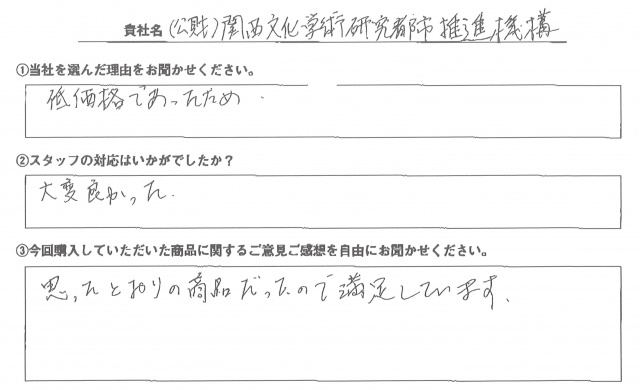 貴社名 (公財)関西文化学術研究都市推進機構
①当社を選んだ理由をお聞かせください。
低価格であったため.
②スタッフの対応はいかがでしたか?
大変良かった.
③今回購入していただいた商品に関するご意見ご感想を自由にお聞かせください。
思ったとおりの商品だったので満足しています.